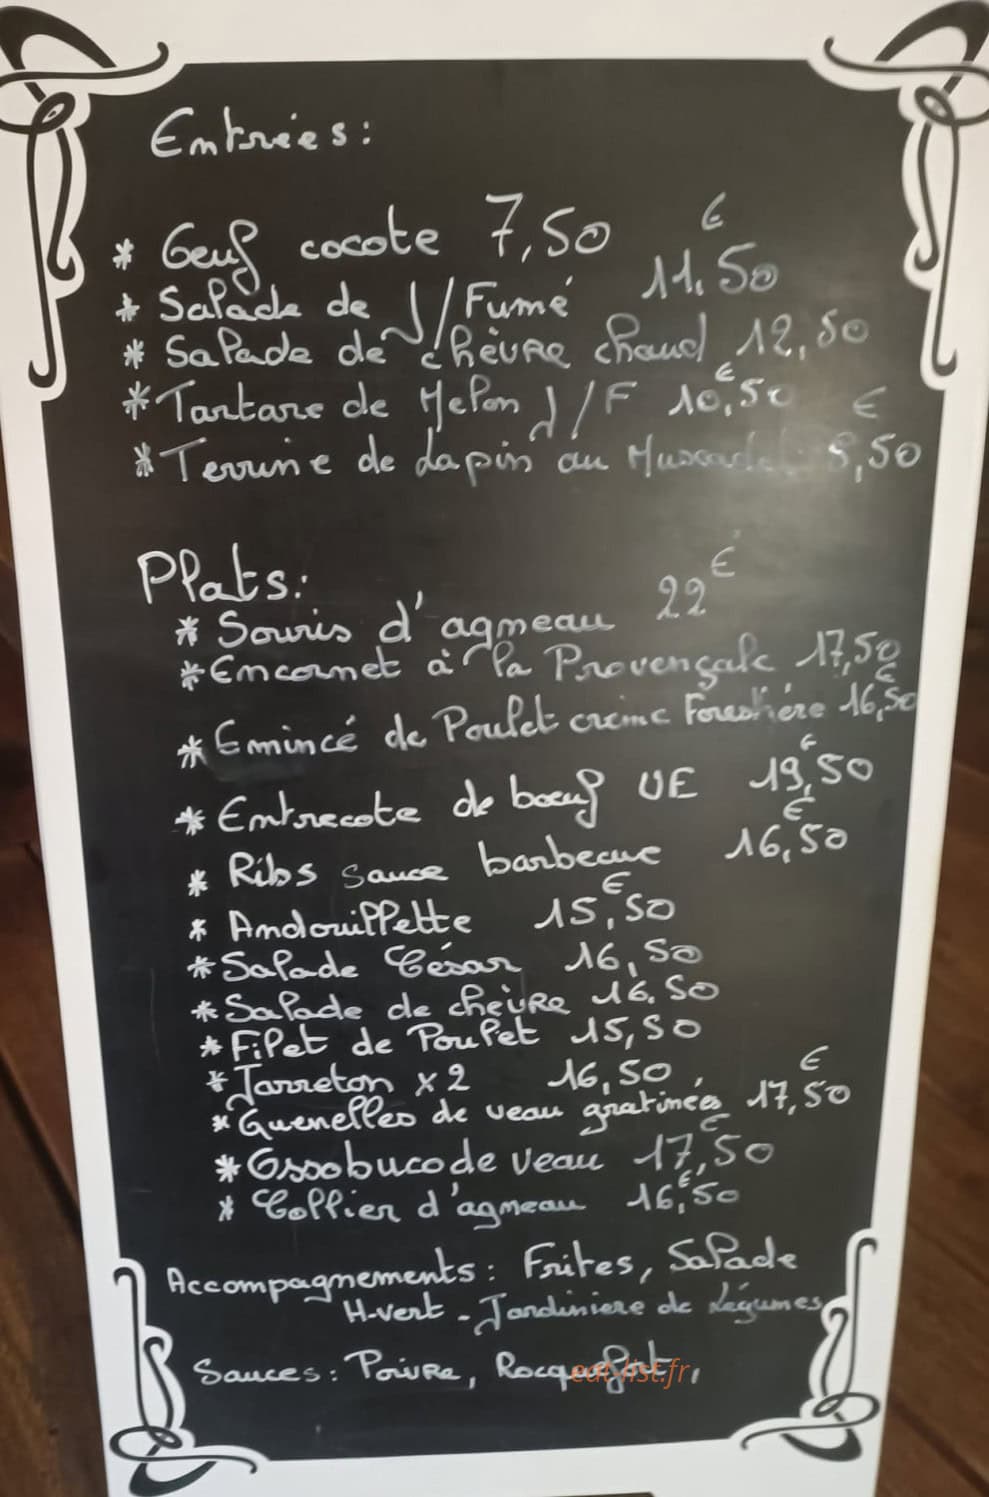 Entrées:
* Oeuf cocote 7,50 €
* Salade de J/Fumé 11,50
* Salade de chèvre chaud 12,50
* Tartare de Melon J/F 10,50 €
* Terrine de Lapin au Muscadet 8,50 €
Plats:
* Souris d'agneau 22 €
* Encornet à la Provençale 17,50
* Emincé de Poulet crème Forestière 16,50 €
* Entrecote de bœuf UE 19,50 €
* Ribs sauce barbecue 16,50 €
* Andouillette 15,50 €
* Salade César 16,50
* Salade de chèvre 16.50
* Filet de Poulet 15,50
* Jarreton x2 16,50
* Quenelles de veau gratinées 17,50 €
* Ossobuco de veau 17,50 €
* Collier d'agneau 16,50 €
Accompagnements: Frites, Salade
H-vert - Jardiniere de Légumes
Sauces: Poivre, Rocquefort,
eat-list.fr